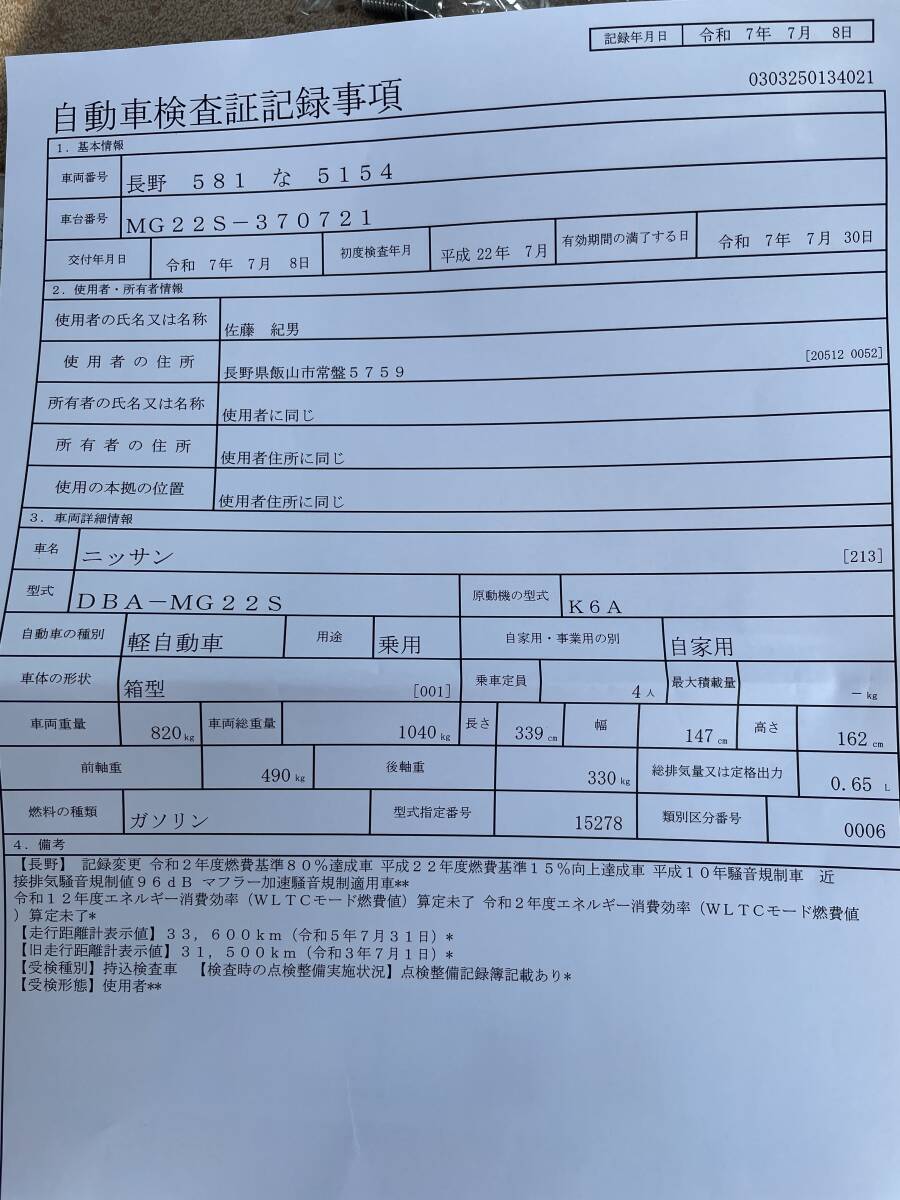 記録年月日 令和 7年 7月 8日
0303250134021
自動車検査証記録事項
1. 基本情報
車両番号 長野 581 な 5154
車台番号 MG22S-370721
交付年月日 令和 7年 7月 8日 初度検査年月 平成 22年 7月 有効期間の満了する日 令和 7年 7月 30日
2. 使用者・所有者情報
使用者の氏名又は名称 佐藤 紀男
使用者の住所 長野県飯山市常盤5759 [20512 0052]
所有者の氏名又は名称 使用者に同じ
所有者の住所 使用者住所に同じ
使用の本拠の位置 使用者住所に同じ
3. 車両詳細情報
車名 ニッサン [213]
型式 DBA-MG22S 原動機の型式 K6A
自動車の種別 軽自動車 用途 乗用 自家用・事業用の別 自家用
車体の形状 箱型 [001] 乗車定員 4人 最大積載量 -kg
車両重量 820kg 車両総重量 1040kg 長さ 339cm 幅 147cm 高さ 162cm
前軸重 490kg 後軸重 330kg 総排気量又は定格出力 0.65 L
燃料の種類 ガソリン 型式指定番号 15278 類別区分番号 0006
4. 備考
【長野】 記録変更 令和2年度燃費基準80%達成車 平成22年度燃費基準15%向上達成車 平成10年騒音規制車 近
接排気騒音規制値96dB マフラー加速騒音規制適用車**
令和12年度エネルギー消費効率(WLTCモード燃費値)算定未了 令和2年度エネルギー消費効率(WLTCモード燃費値
)算定未了*
【走行距離計表示値】33,600km(令和5年7月31日)*
【旧走行距離計表示値】31,500km(令和3年7月1日)*
【受検種別】持込検査車 【検査時の点検整備実施状況】点検整備記録簿記載あり*
【受検形態】使用者**